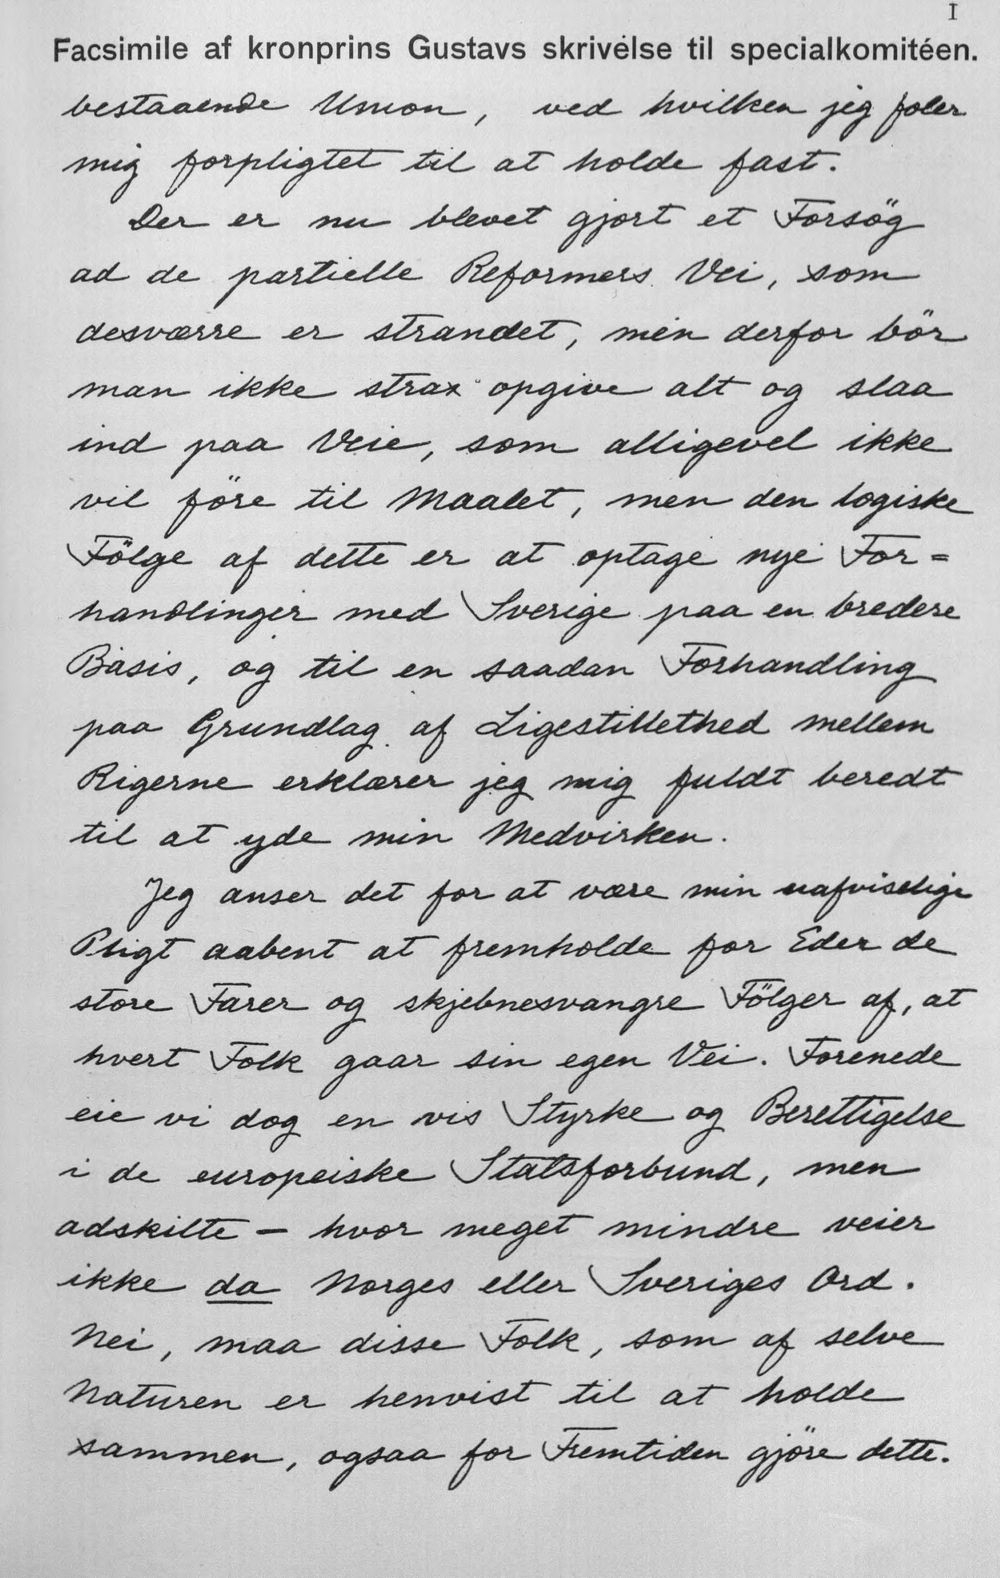 I
Facsimile af kronprins Gustavs skrivelse til specialkomitéen.
bestaaende Union, ved hvilken jeg føler
mig forpligtet til at holde fast.
Der er nu blevet gjort et Forsög
ad de partielle Reformers Vei, som
desværre er strandet, men derfor bör
man ikke strax opgive alt og slaa
ind paa Veie, som alligevel ikke
vil före til Maalet, men den logiske
Fölge af dette er at optage nye For=
handlinger med Sverige paa en bredere
Basis, og til en saadan Forhandling
paa Grundlag af Ligestillethed mellem
Rigerne erklærer jeg mig fuldt beredt
til at yde min Medvirken.
Jeg anser det for at være min uafviselige
Pligt aabent at fremholde for Eder de
store Farer og skjebnesvangre Fölger af, at
hvert Folk gaar sin egen Vei. Forenede
eie vi dog en vis Styrke og Berettigelse
i de europeiske Statsforbund, men
adskilte - hvor meget mindre veier
ikke da Norges eller Sveriges Ord.
Nei, maa disse Folk, som af selve
Naturen er henvist til at holde
sammen, ogsaa for Fremtiden gjöre dette.